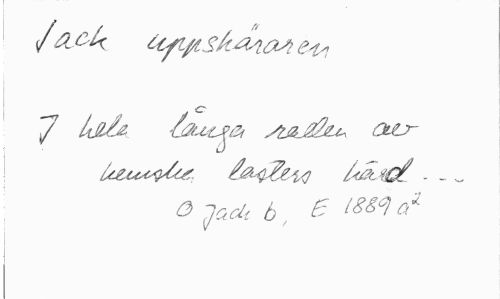 Jack uppskäraren
I hela långa raden av
hemska lasters härd ...
O Jack b, E 1889 a²